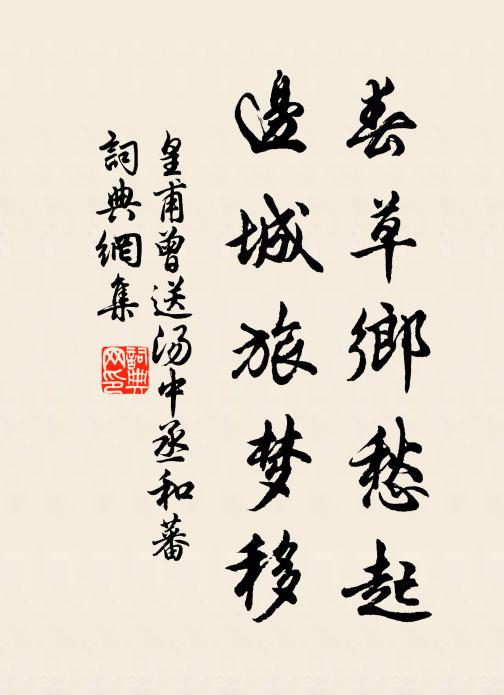 春草鄉愁起
邊城旅梦移
皇甫曾送汤中丞和蕃
詞典網集
詞典网印